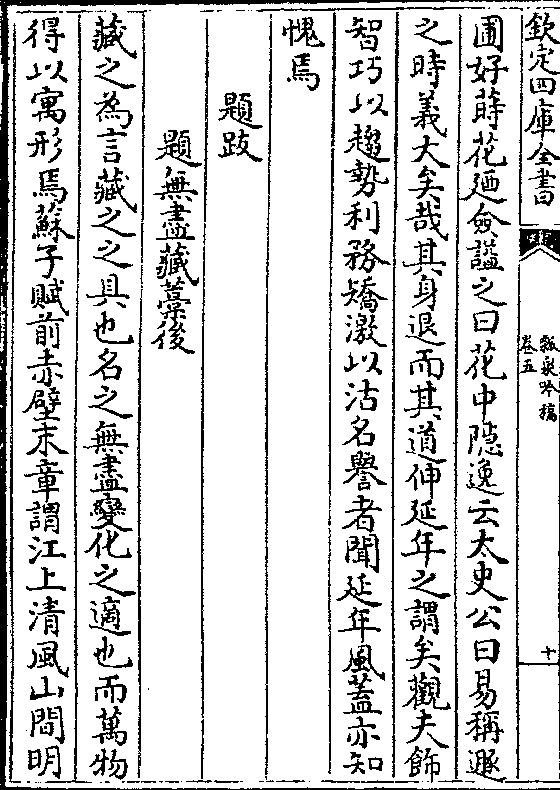 欽定四庫全書
瓢泉吟稿
卷五
十
圃好蒔花廼僉謚之曰花中隠逸云太史公曰易稱遯
之時義大矣哉其身退而其道伸延年之謂矣觀夫飾
智巧以趨勢利務矯激以沽名譽者聞延年風蓋亦知
愧焉
題跋
題無盡藏藁後
藏之為言藏之之具也名之無盡變化之適也而萬物
得以寓形焉蘇子賦前赤壁末章謂江上清風山間明